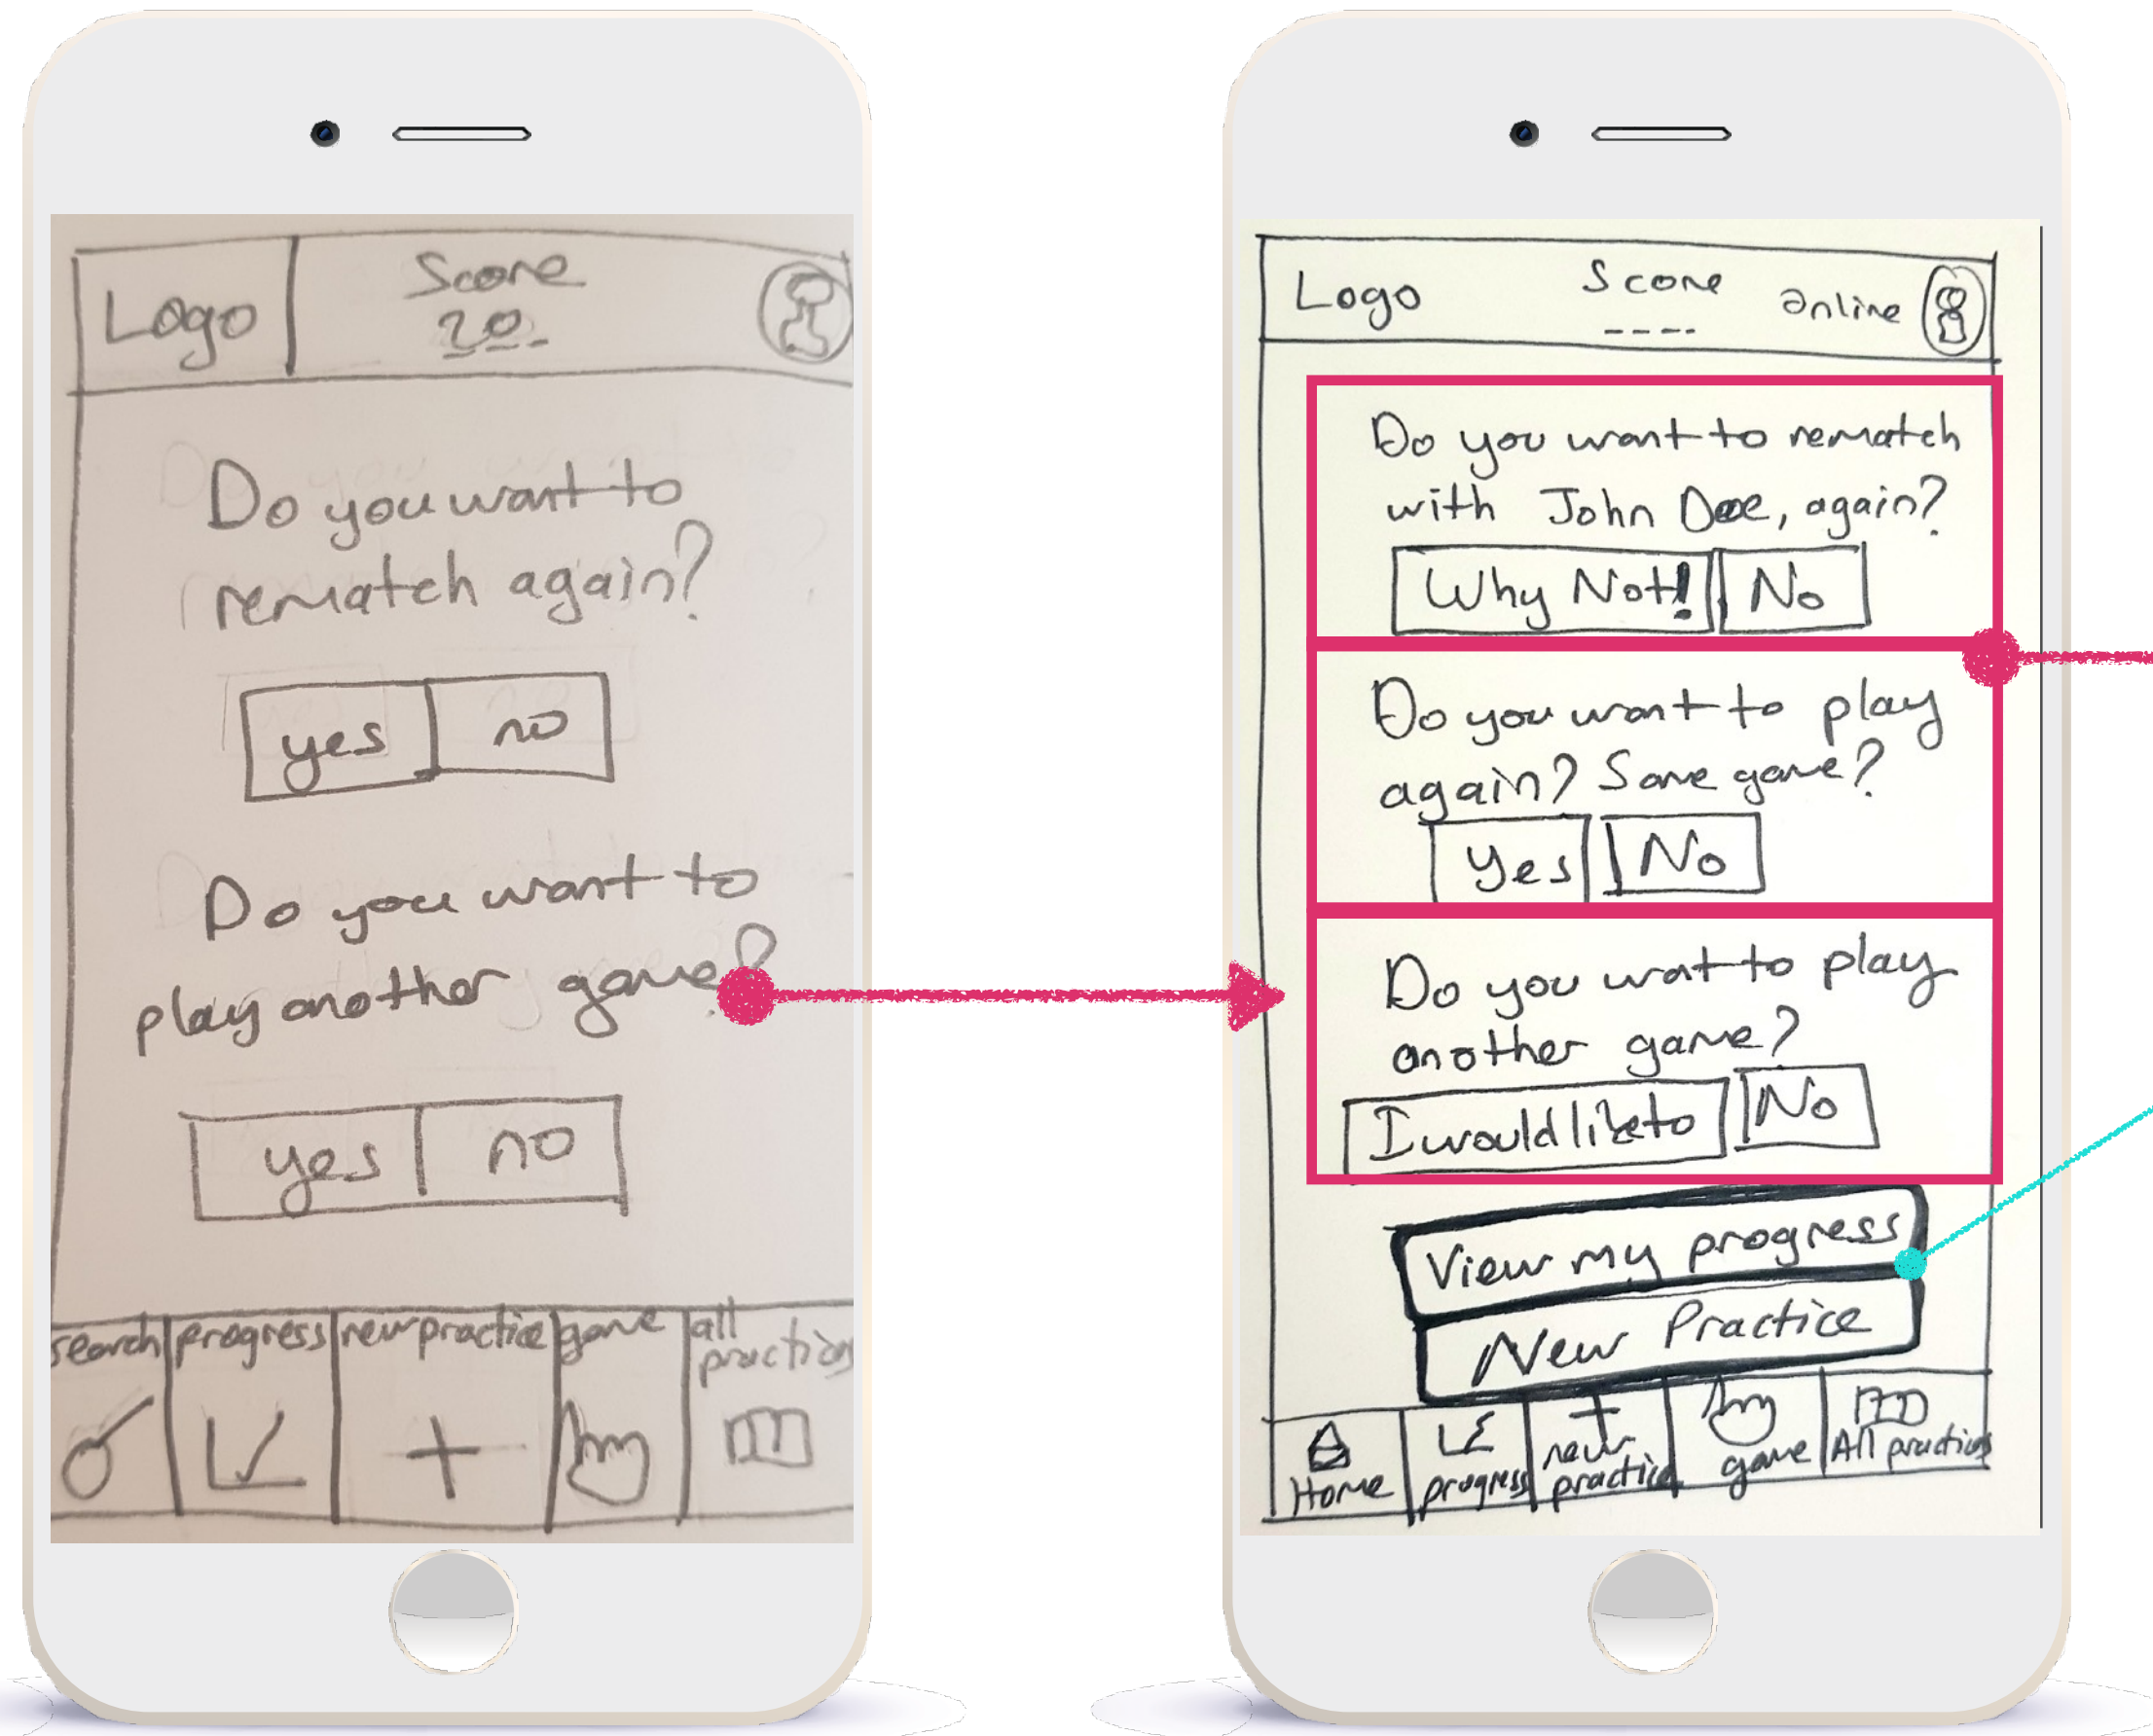 Logo
Score
20
Do you want to
rematch again?
yes no
Do you want to
play another game?
yes no
search progress new practice game all
practices
Logo Score online
Do you want to rematch
with John Doe, again?
Why Not! No
Do you want to play
again? Same game?
Yes No
Do you wat to play
another game?
I would like to No
View my progress
New Practice
Home progress new
practice game All practices